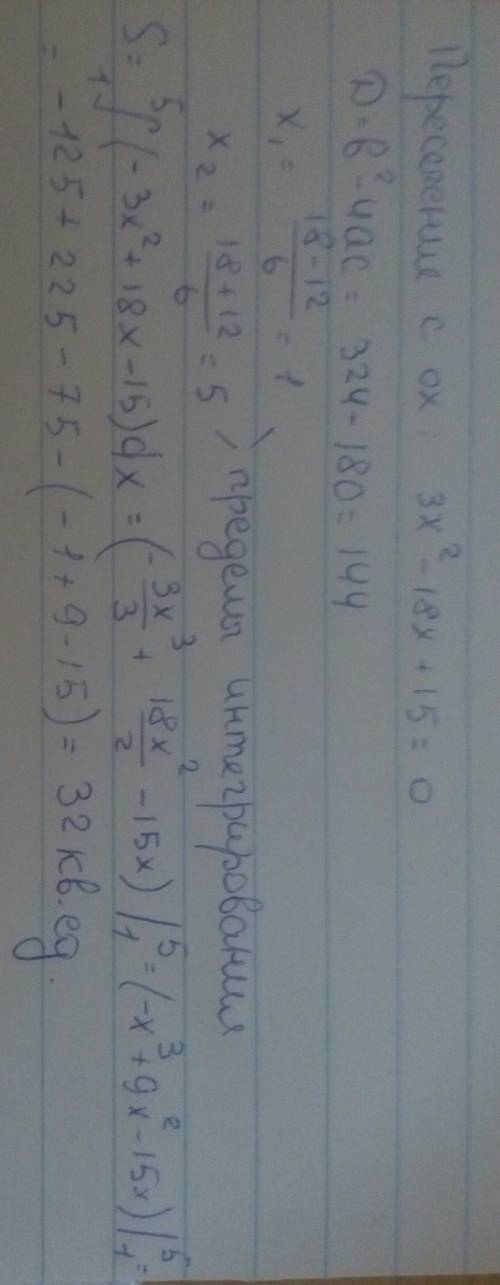 Пересечение с ox: 3x² - 18x + 15 = 0
D = b² - 4ac = 324 - 180 = 144
x₁ = (18 - 12)/6 = 1
x₂ = (18 + 12)/6 = 5 , пределы интегрирования
S = ₁∫⁵ (-3x² + 18x - 15)dx = (-3x³/3 + 18x²/2 - 15x) |₁⁵ = (-x³ + 9x² - 15x) |₁⁵ =
= -125 + 225 - 75 - (-1 + 9 - 15) = 32 кв. ед.